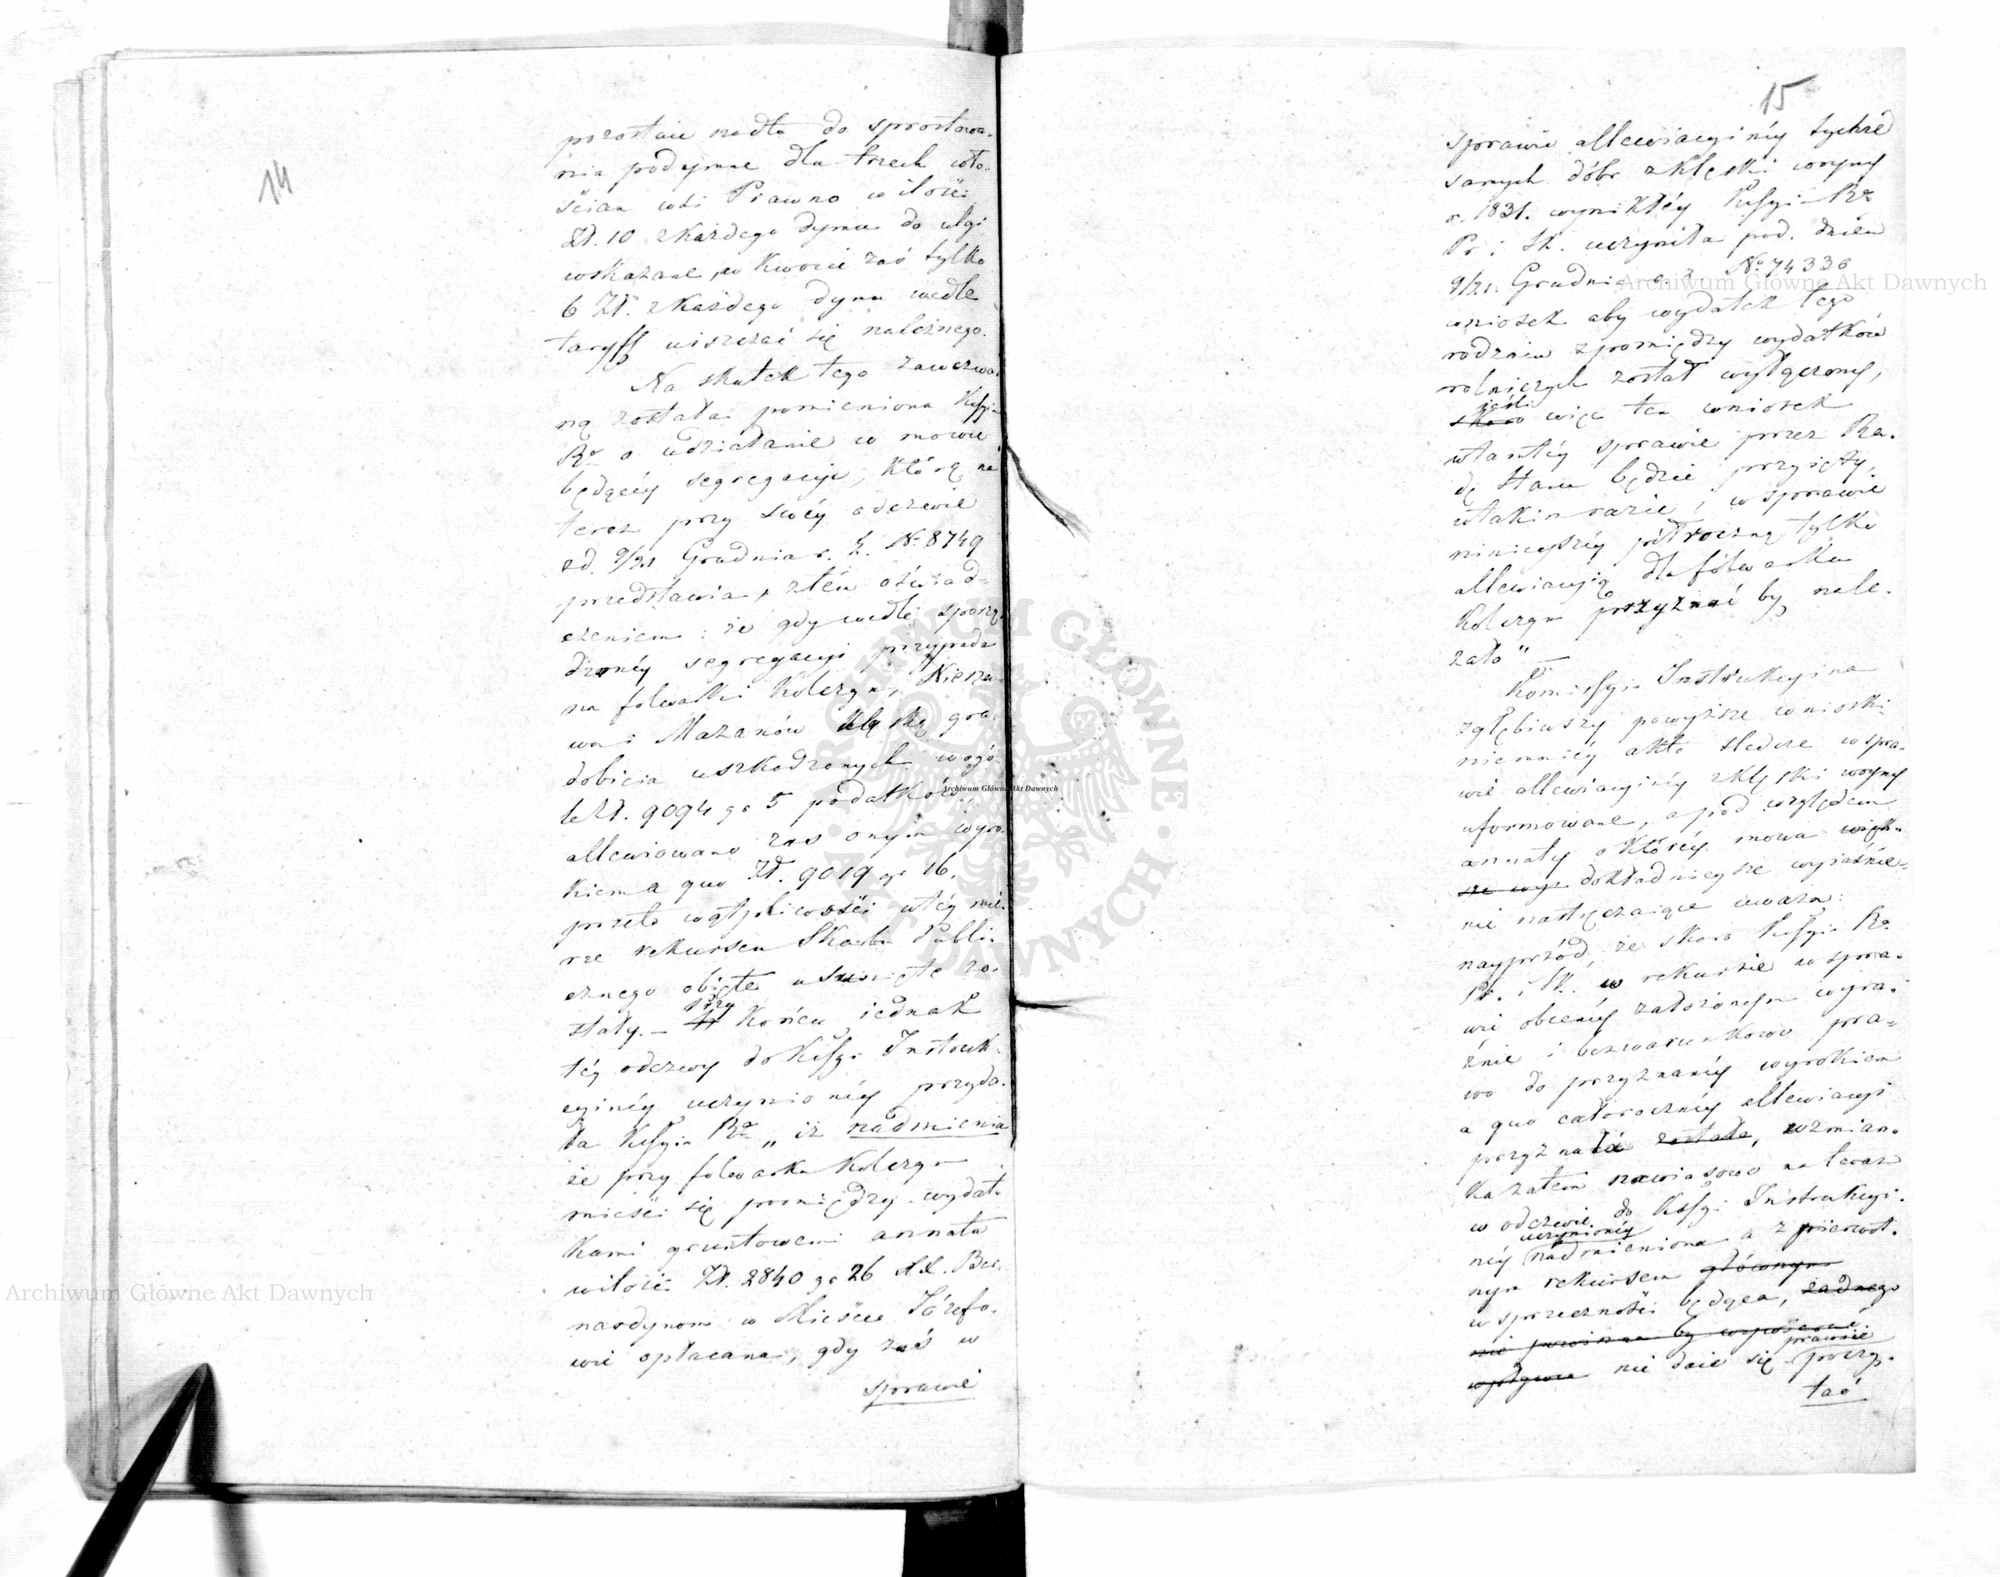 14
pozostaie nadto do sprostowa-
nia podymne dla trzech wło-
ścian wsi Prawno w ilości
Zł. 10 z każdego dymu do ulgi
wskazane, w kwocie zaś tylko
6 Zł. z każdego dymu wedle
taryff uiszczać się należnego.
Na skutek tego zawezwa-
ną została pomieniona Kssyia
Rz. o udziałanie w mowie
będącéy segregacyi, którą na
teraz przy swéy odezwie
z d. 9/21 Grudnia r. z. N. 8749
przedstawia, z tém oświad-
czeniem: że gdy wedle sporzą-
dzonéy segregacyi przypada
na folwarki Kolczyn, Niesza-
wa i Mazanów klęską gra-
dobicia uszkodzonych wogó-
le Zł. 9094 gr 5 podatków,
allewiowano zaś onym wyro-
kiem a quo Zł. 9019 gr 16.
przeto wątpliwości w téy mie-
rze rekursem Skarbu Publi-
cznego obięte usunięte zo-
stały. –
przy
Końcu iednak
téy odezwy do Kssyi Instruk-
cyinéy uczynionéy przyda-
ła Kssyia Rz. „iż nadmienia
że przy folwarku Kolczyn
mieści się pomiędzy wydat-
kami gruntowemi annata
w ilości Zł. 2840 gr 26 XX. Ber-
nardynom w Mieście Józefo-
wie opłacana, gdy zaś w
sprawie
15
sprawie allewiacyinéy tychże
samych dóbr z klęski woyny
r. 1831. wynikłéy Kssyia Rz.
Pr. i Sk. uczyniła pod. dniem
9/21. Grudnia r. z. N° 74336
wniosek aby wydatek tego
rodzaiu z pomiędzy wydatków
rolniczych został wyłączony,
jeśli
skoro więc ten wniosek
w tamtéy sprawie przez Ra-
dę Stanu będzie przyięty,
w takim razie i w sprawie
ninieyszéy półroczną tylko
allewiacyią dla folwarku
Kolczyn przyznać by nale-
żało" –
Komissyia Instrukcyina
zgłębiwszy powyższe wnioski
niemniéy akta śledcze w spra-
wie allewiacyinéy z klęski woyny
uformowane, a pod względem
annaty o któréy mowa więk-
sze wyi dokładnieysze wyiaśnie-
nie nastręczaiące uważa:
nayprzód, że skoro Kssyia Rz.
Pr. i Sk. w rekursie w spra-
wie obecnéy założonym wyra-
źnie i bezwarunkowo pra-
wo do przyznanéy wyrokiem
a quo całorocznéy allewiacyi
przyznała została, wzmian-
ka zatem nawiasowo na teraz
w odezwie do Kssyi Instrukcyi-
uczynionéy
néy nadmieniona a z pierwot-
nym rekursem głównym
w sprzeczności będąca, żadnego
prawnie
nie daie się poczy-
tać